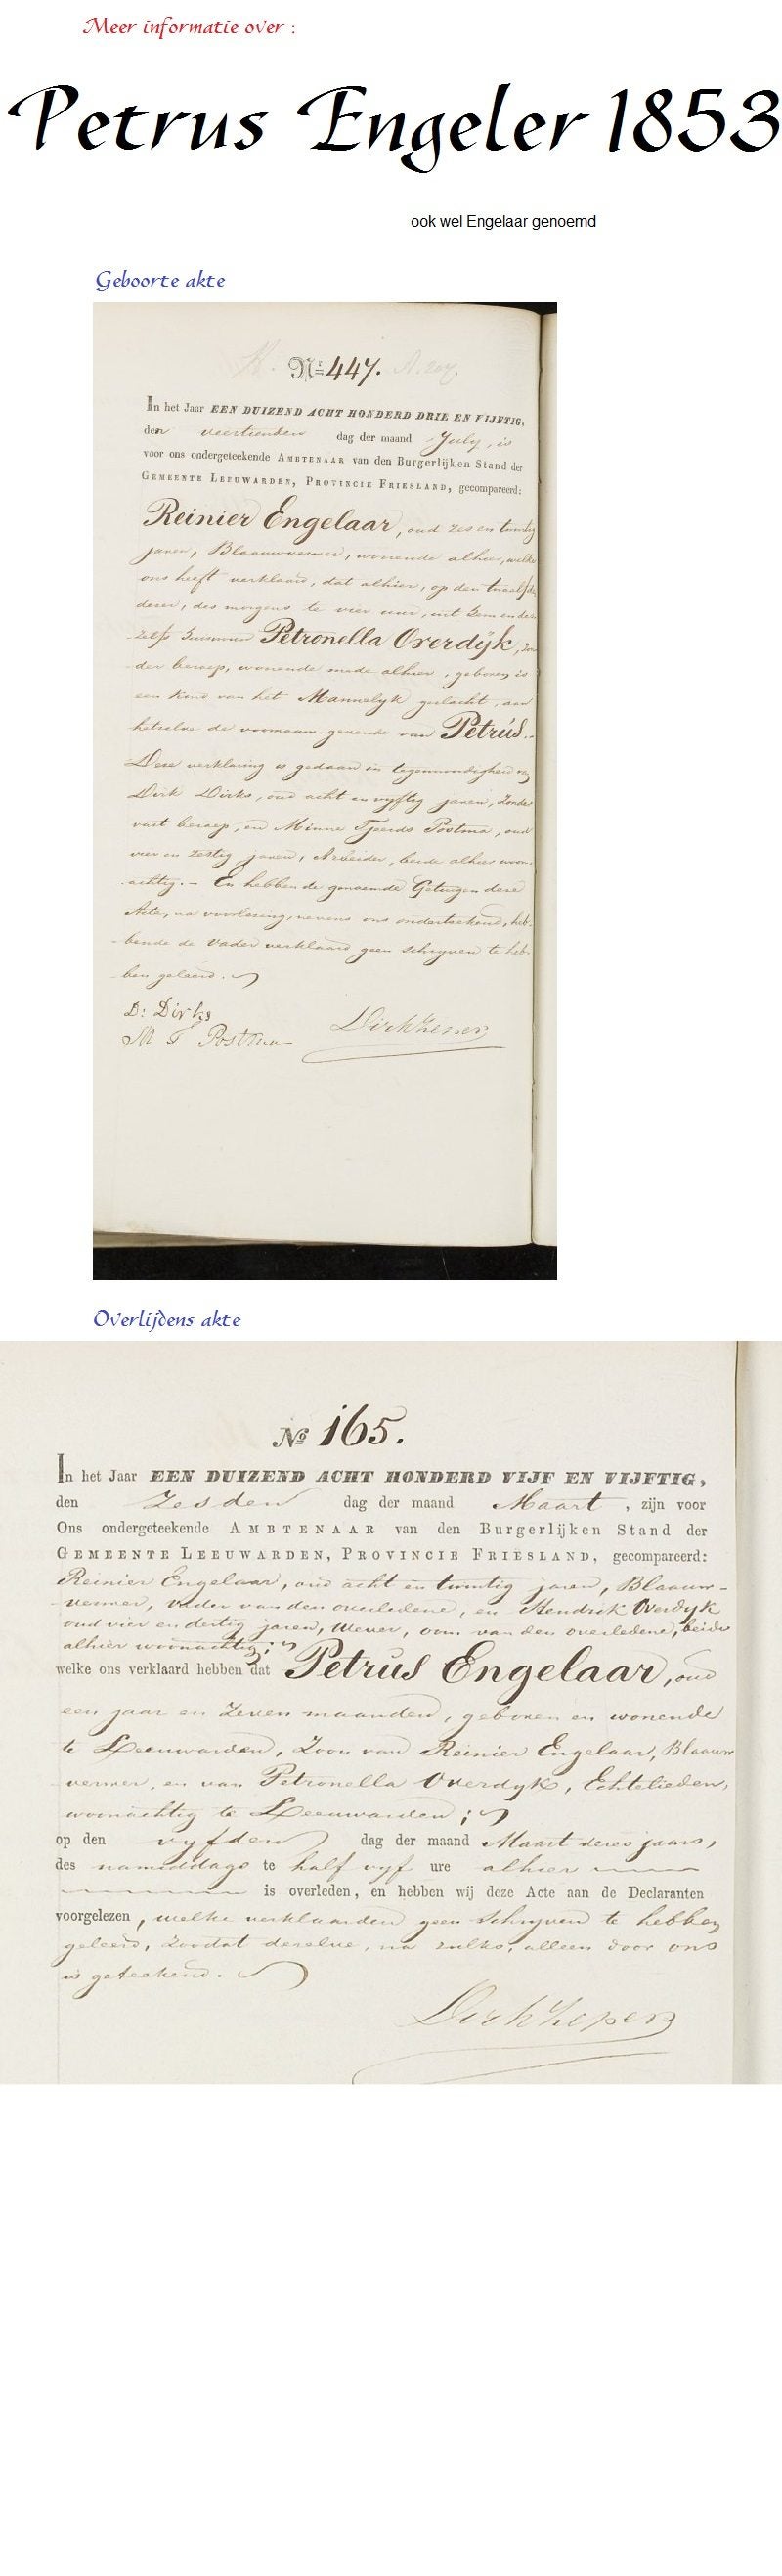 Meer informatie over :
Petrus Engeler 1853
ook wel Engelaar genoemd
Geboorte akte
Nr 447.
In het Jaar EEN DUIZEND ACHT HONDERD DRIE EN VIJFTIG,
den veertienden dag der maand July, is
voor ons ondergeteekende AMBTENAAR van den Burgerlijken Stand der
GEMEENTE LEEUWARDEN, PROVINCIE FRIESLAND, gecompareerd:
Reinier Engelaar, oud zes en twintig
jaren, Blaauwverwer, wonende alhier, welke
ons heeft verklaard, dat alhier, op den twaalfde
dezer, des morgens te vier uur, uit hem en des-
zelfs huisvrouw Petronella Overdijk, zon-
der beroep, wonende mede alhier, geboren is
een kind van het Mannelyk geslacht, aan
hetzelve de voornaam gevende van Petrus.
Deze verklaring is gedaan in tegenwoordigheid van
Dirk Dirks, oud acht en vyftig jaren, zonder
vast beroep, en Minne Tjeerds Postma, oud
vier en zestig jaren, Arbeider, beide alhier woon-
achtig. – En hebben de genoemde Getuigen deze
Acte, na voorlezing, nevens ons onderteekend, heb-
bende de Vader verklaard geen schryven te heb-
ben geleerd.
D: Dirks
M T Postma
Dirk Zeper
Overlijdens akte
No 165.
In het Jaar EEN DUIZEND ACHT HONDERD VIJF EN VIJFTIG,
den Zesden dag der maand Maart, zijn voor
Ons ondergeteekende AMBTENAAR van den Burgerlijken Stand der
GEMEENTE LEEUWARDEN, PROVINCIE FRIESLAND, gecompareerd:
Reinier Engelaar, oud acht en twintig jaren, Blaauw-
verwer, vader van den overledene, en Hendrik Overdyk
oud vier en dertig jaren, Wever, oom van den overledene, beide
alhier woonachtig;
welke ons verklaard hebben dat Petrus Engelaar, oud
een jaar en zeven maanden, geboren en wonende
te Leeuwarden, Zoon van Reinier Engelaar, Blaauw
verwer, en van Petronella Overdyk, Echtelieden,
woonachtig te Leeuwarden;
op den vyfden dag der maand Maart dezes jaars,
des namiddags te half vyf ure alhier
is overleden, en hebben wij deze Acte aan de Declaranten
voorgelezen, welke verklaarden geen schryven te hebben
geleerd, zoodat dezelve, na zulks, alleen door ons
is geteekend.
Dirk Zeper